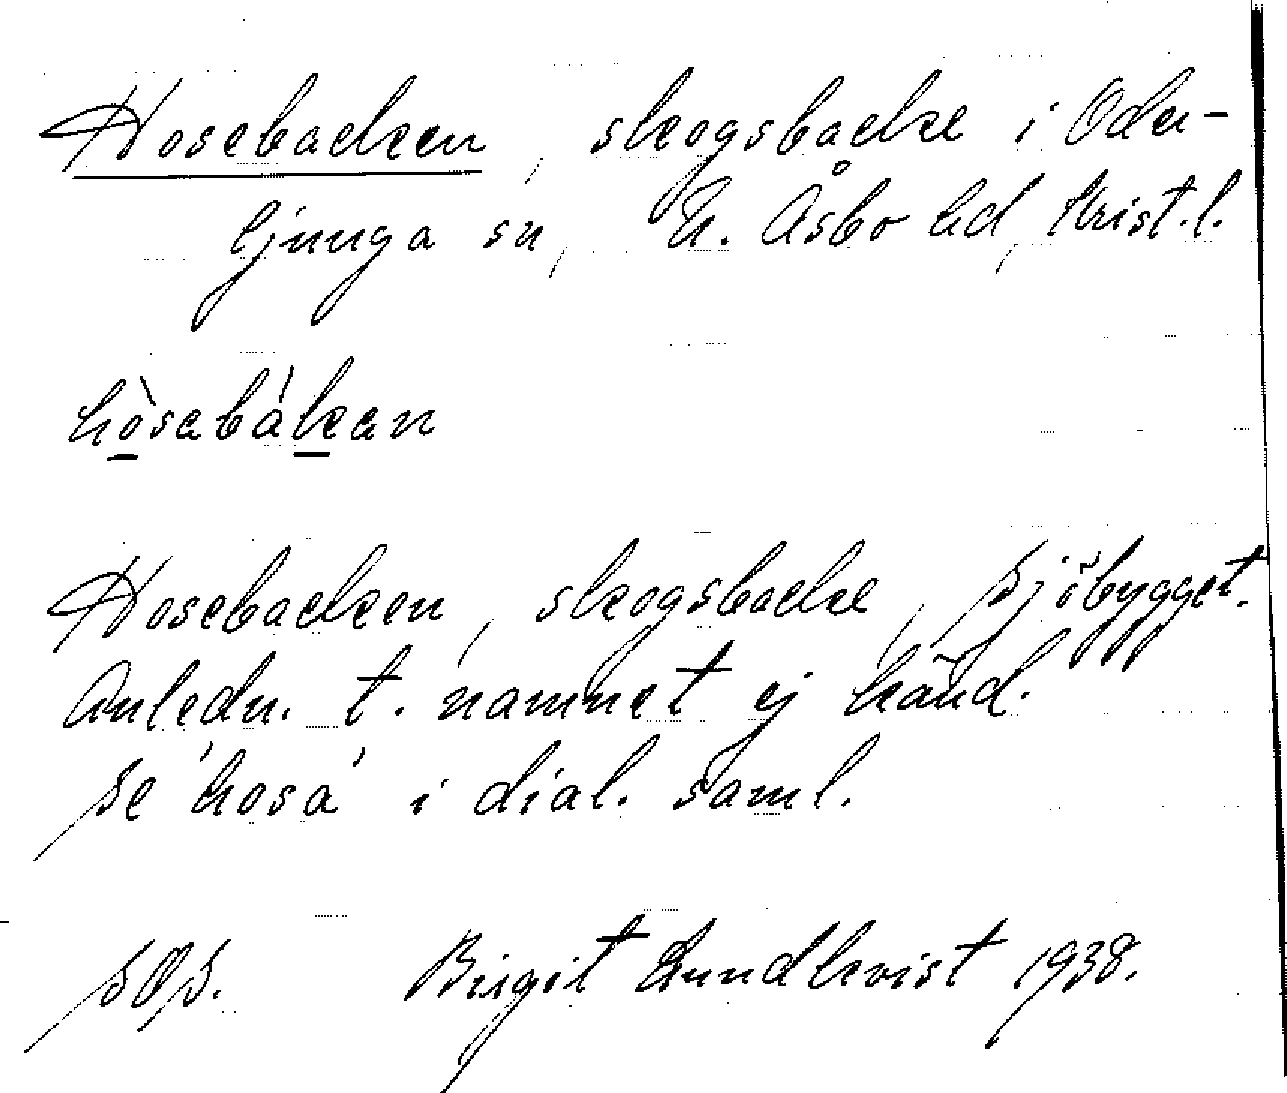 Hosebacken, skogsbacke i Oder-
ljunga sn, N. Åsbo hd, Krist.l.
hòsebákan
Hosebacken, skogsbacke, Sjöbygget.
Anledn. t. namnet ej känd.
Se 'hosa' i dial. saml.
SOS. Birgit Lundkvist 1938.